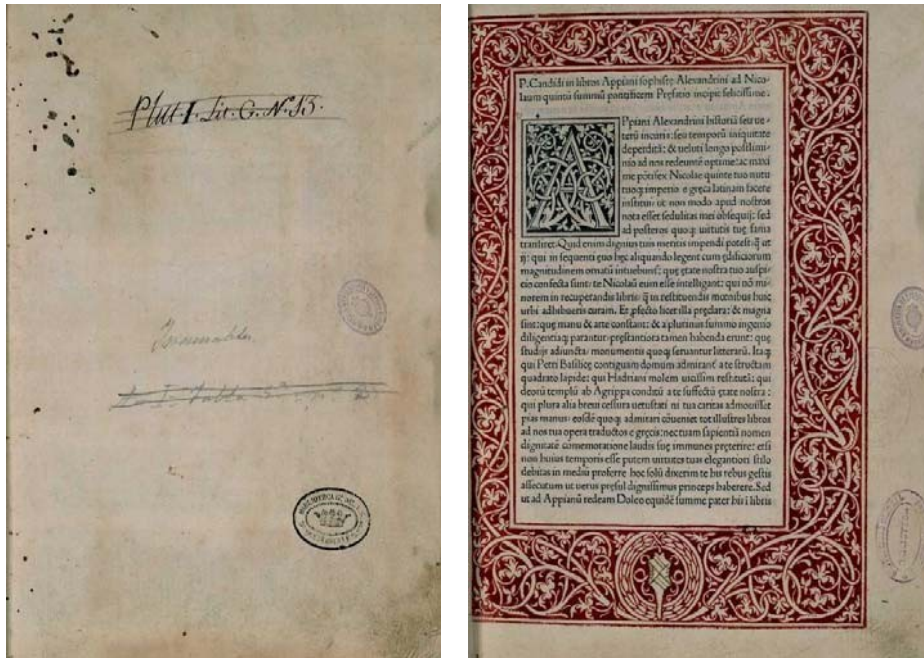 Plut. I. Lit. G. N. 13.
P. Candidi in libros Appiani sophistę Alexandrini ad Nico-
laum quintū summū pontificem Pręfatio incipit felicissime.
APpiani Alexandrini historiā seu ue-
terū incuria: seu temporū iniquitate
deperditā: & ueluti longo postlimi-
nio ad nos redeuntē optime: ac maxi
me pōtifex Nicolae quinte tuo nutu
tuoq; imperio e gręca latinam facere
institui: ut non modo apud nostros
nota esset sedulitas mei obsequij: sed
ad posteros quoq; uirtutis tuę fama
transiret. Quid enim dignius tuis meritis impendi potest: q̄ ut
ij: qui in sequenti ęuo hęc aliquando legent cum ędificiorum
magnitudinem ornatū intuebunt̄: quę ętate nostra tuo auspi-
cio confecta sunt: te Nicolaū eum esse intelligant: qui nō mi-
norem in recuperandis libris: q̄ in restituendis mœnibus huic
urbi adhibueris curam. Et ꝓfecto licet illa pręclara: & magna
sint: quę manu & arte constant: & a plurimis summo ingenio
diligentiaq; parantur: pręstantiora tamen habenda erunt: quę
studijs adiuncta: monumentis quoq; seruantur litterarū. Itaq;
qui Petri Basilicę contiguam domum admirant̄ a te structam
quadrato lapide: qui Hadriani molem uicissim restitutā: qui
deorū templū ab Agrippa conditū a te suffectū ętate nostra:
qui plura alia breui cessura uetustati ni tua caritas admouisset
pias manus: eosdē quoq; admirari cōueniet tot illustres libros
ad nos tua opera traductos e gręcis: nec tuam sapientiā nomen
dignitatē comemoratione laudis suę immunes pręterire: etsi
non huius temporis esse putem uirtutes tuas elegantiori stilo
debitas in mediū proferre hoc solū dixerim te his rebus gestis
assecutum ut uerus pręsul dignissimus princeps haberere. Sed
ut ad Appianū redeam Doleo equidē summe pater his ī libris